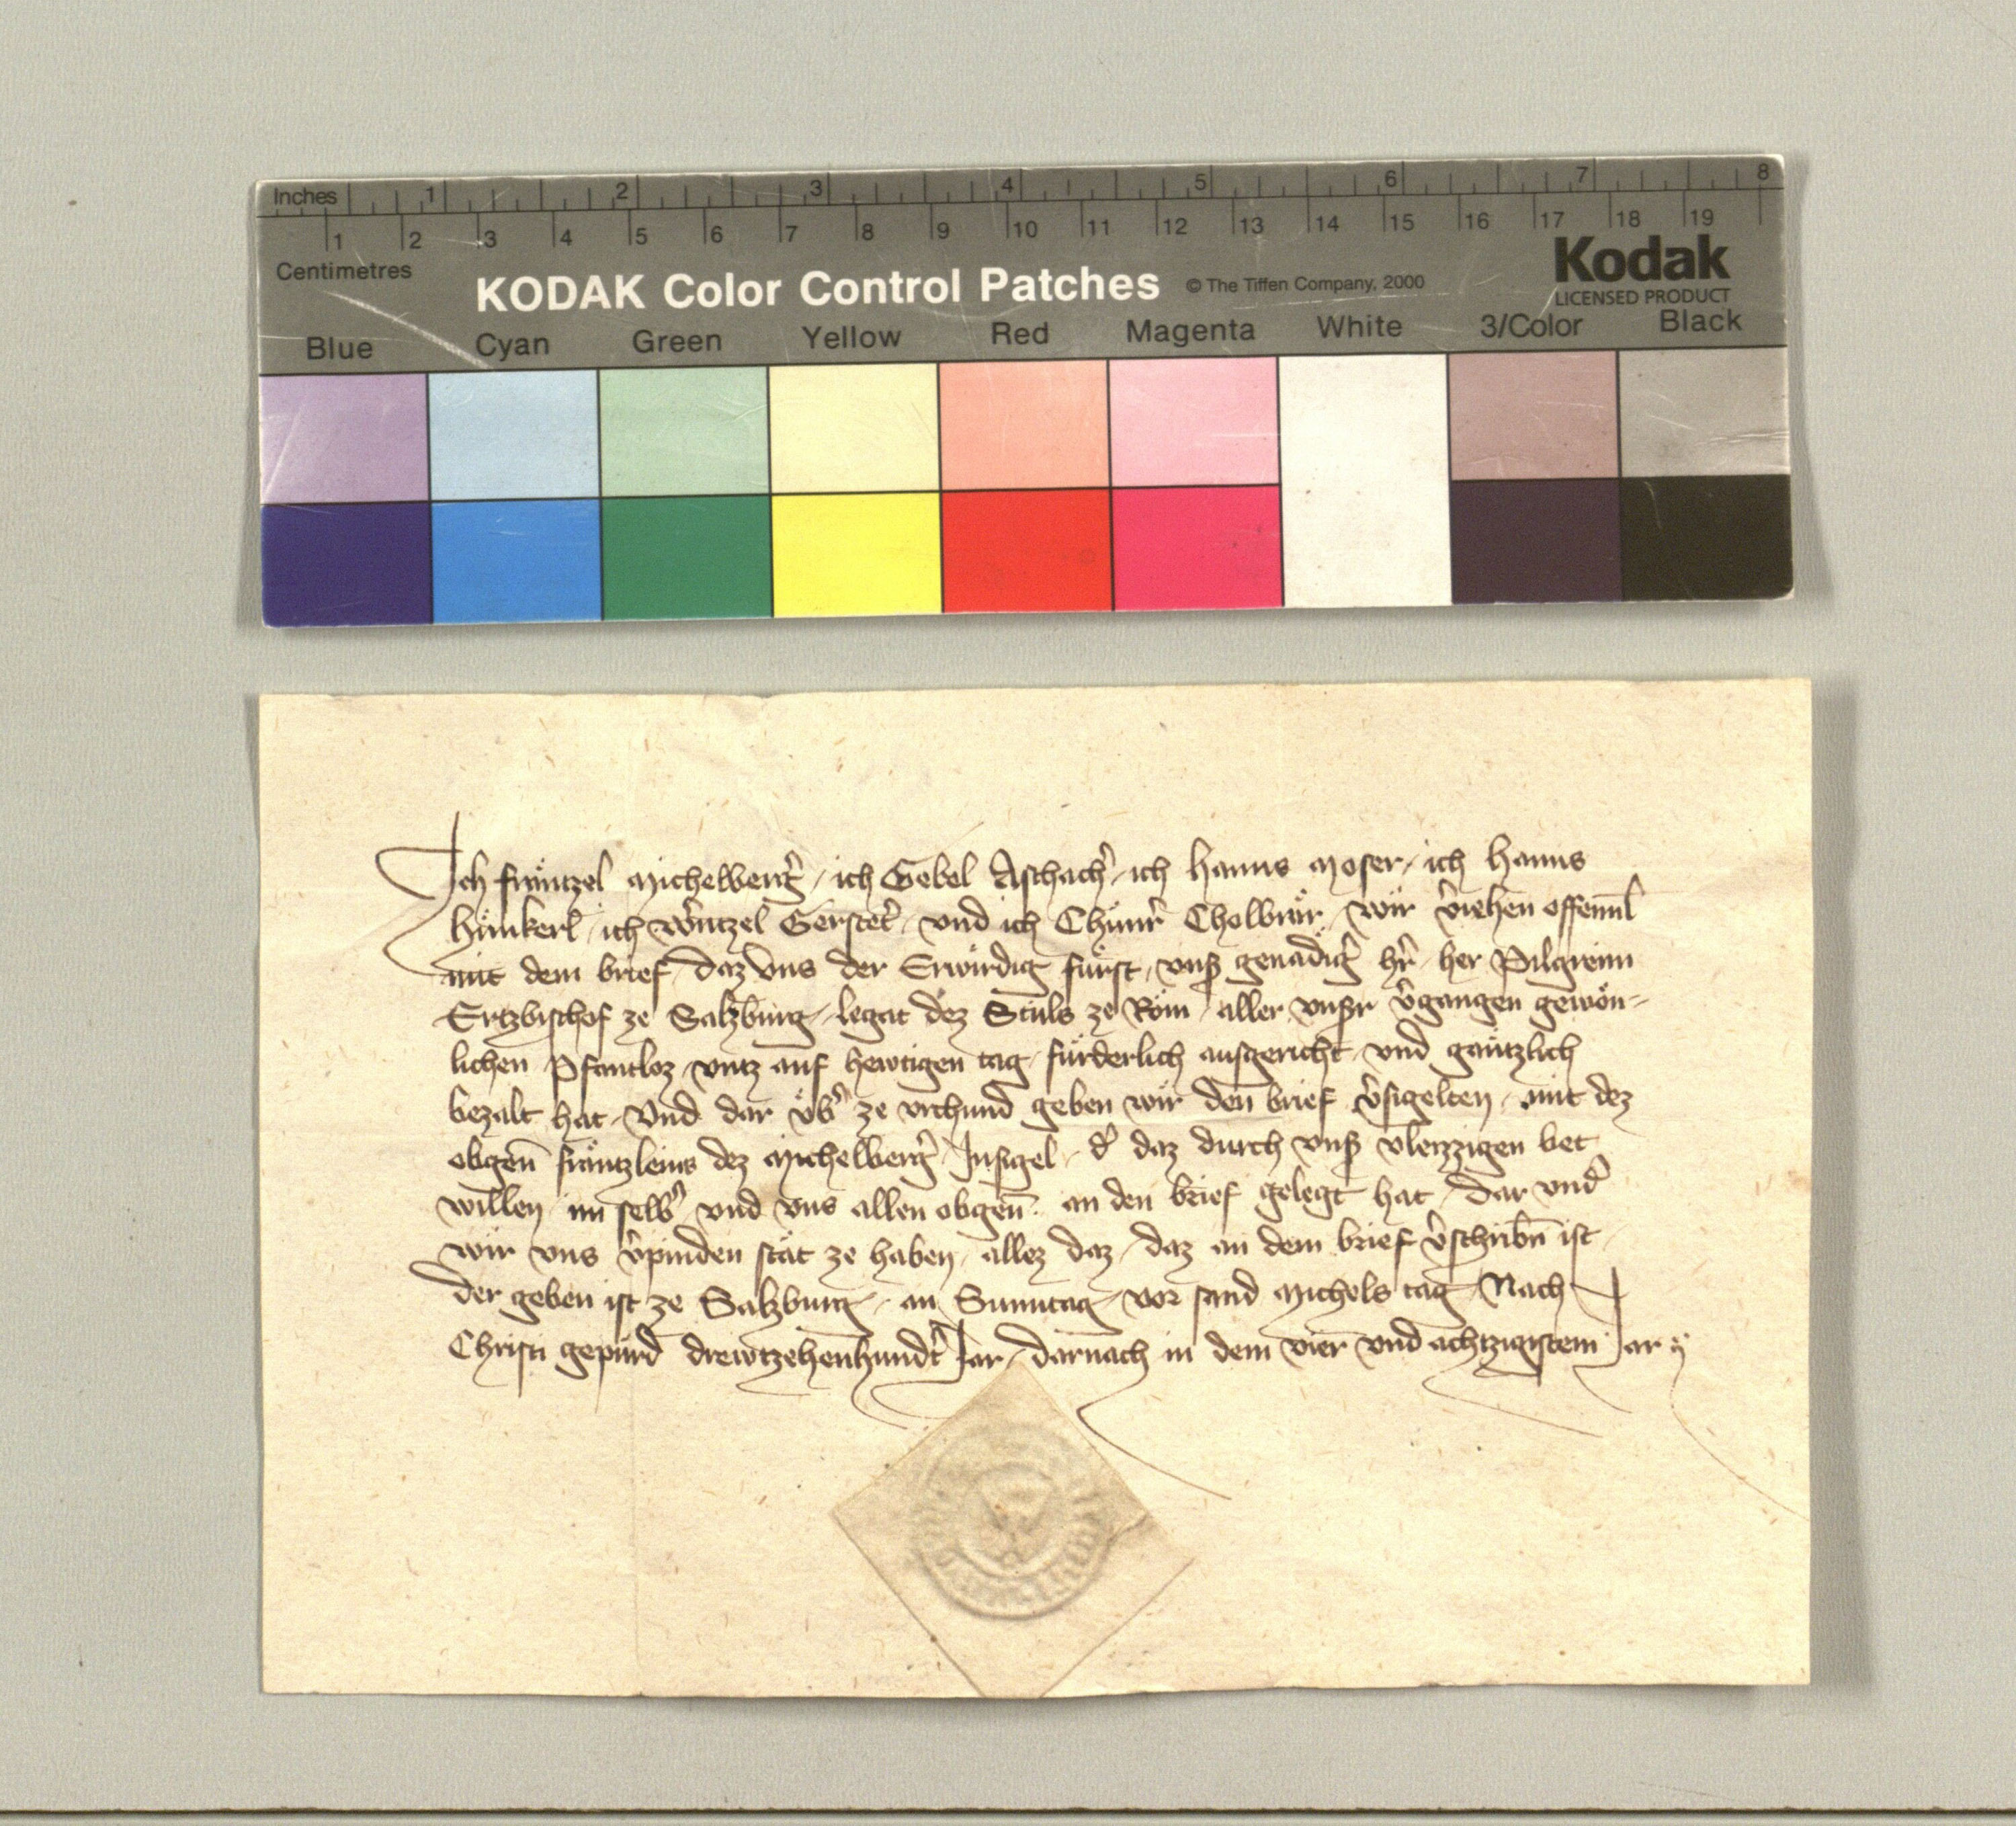 Inches 1 2 3 4 5 6 7 8
1 2 3 4 5 6 7 8 9 10 11 12 13 14 15 16 17 18 19
Centimetres
KODAK Color Control Patches © The Tiffen Company, 2000
Kodak
LICENSED PRODUCT
Blue Cyan Green Yellow Red Magenta White 3/Color Black
Ich Fräntzel Michelberg̉ / ich Gebel Aschach̉ / ich Hanns Moser / ich Hanns
ich Gerstet̉ / vnd ich / wir v̉iehen offennl̄
mit dem brief / daz vns der Erwirdig fürst / vnsß genädig̉ hr̉ / her Pilgreim
Ertzbischof ze Salzburg / legat dez Stuls ze Rom / aller vnsßr v̉gangen gewön-
lichen Pfantloz / vntz auf hewtigen tag / fürderlich ausgericht / vnd gäntzlich
bezalt hat / Vnd dar üb̉ ze vrchund geben wir den brief v̉sigelten / mit dez
obgen̄ Fräntzleins dez Michelberg̉ Insigel / d̉ daz durch vnsß vleizzigen bet
willen / im selb̉ vnd vns allen obgen̄ / an den brief gelegt hat / Dar vnd̉
wir vns v̉pinden stät ze haben / allez daz / daz an dem brief v̉schribn̄ ist /
der geben ist ze Salzburg / an Sunntag / vor sand Michels tag / Nach
Christi gepürd drewtzehenhundt̉ Iar / darnach in dem vier vnd achtzigistem Iar